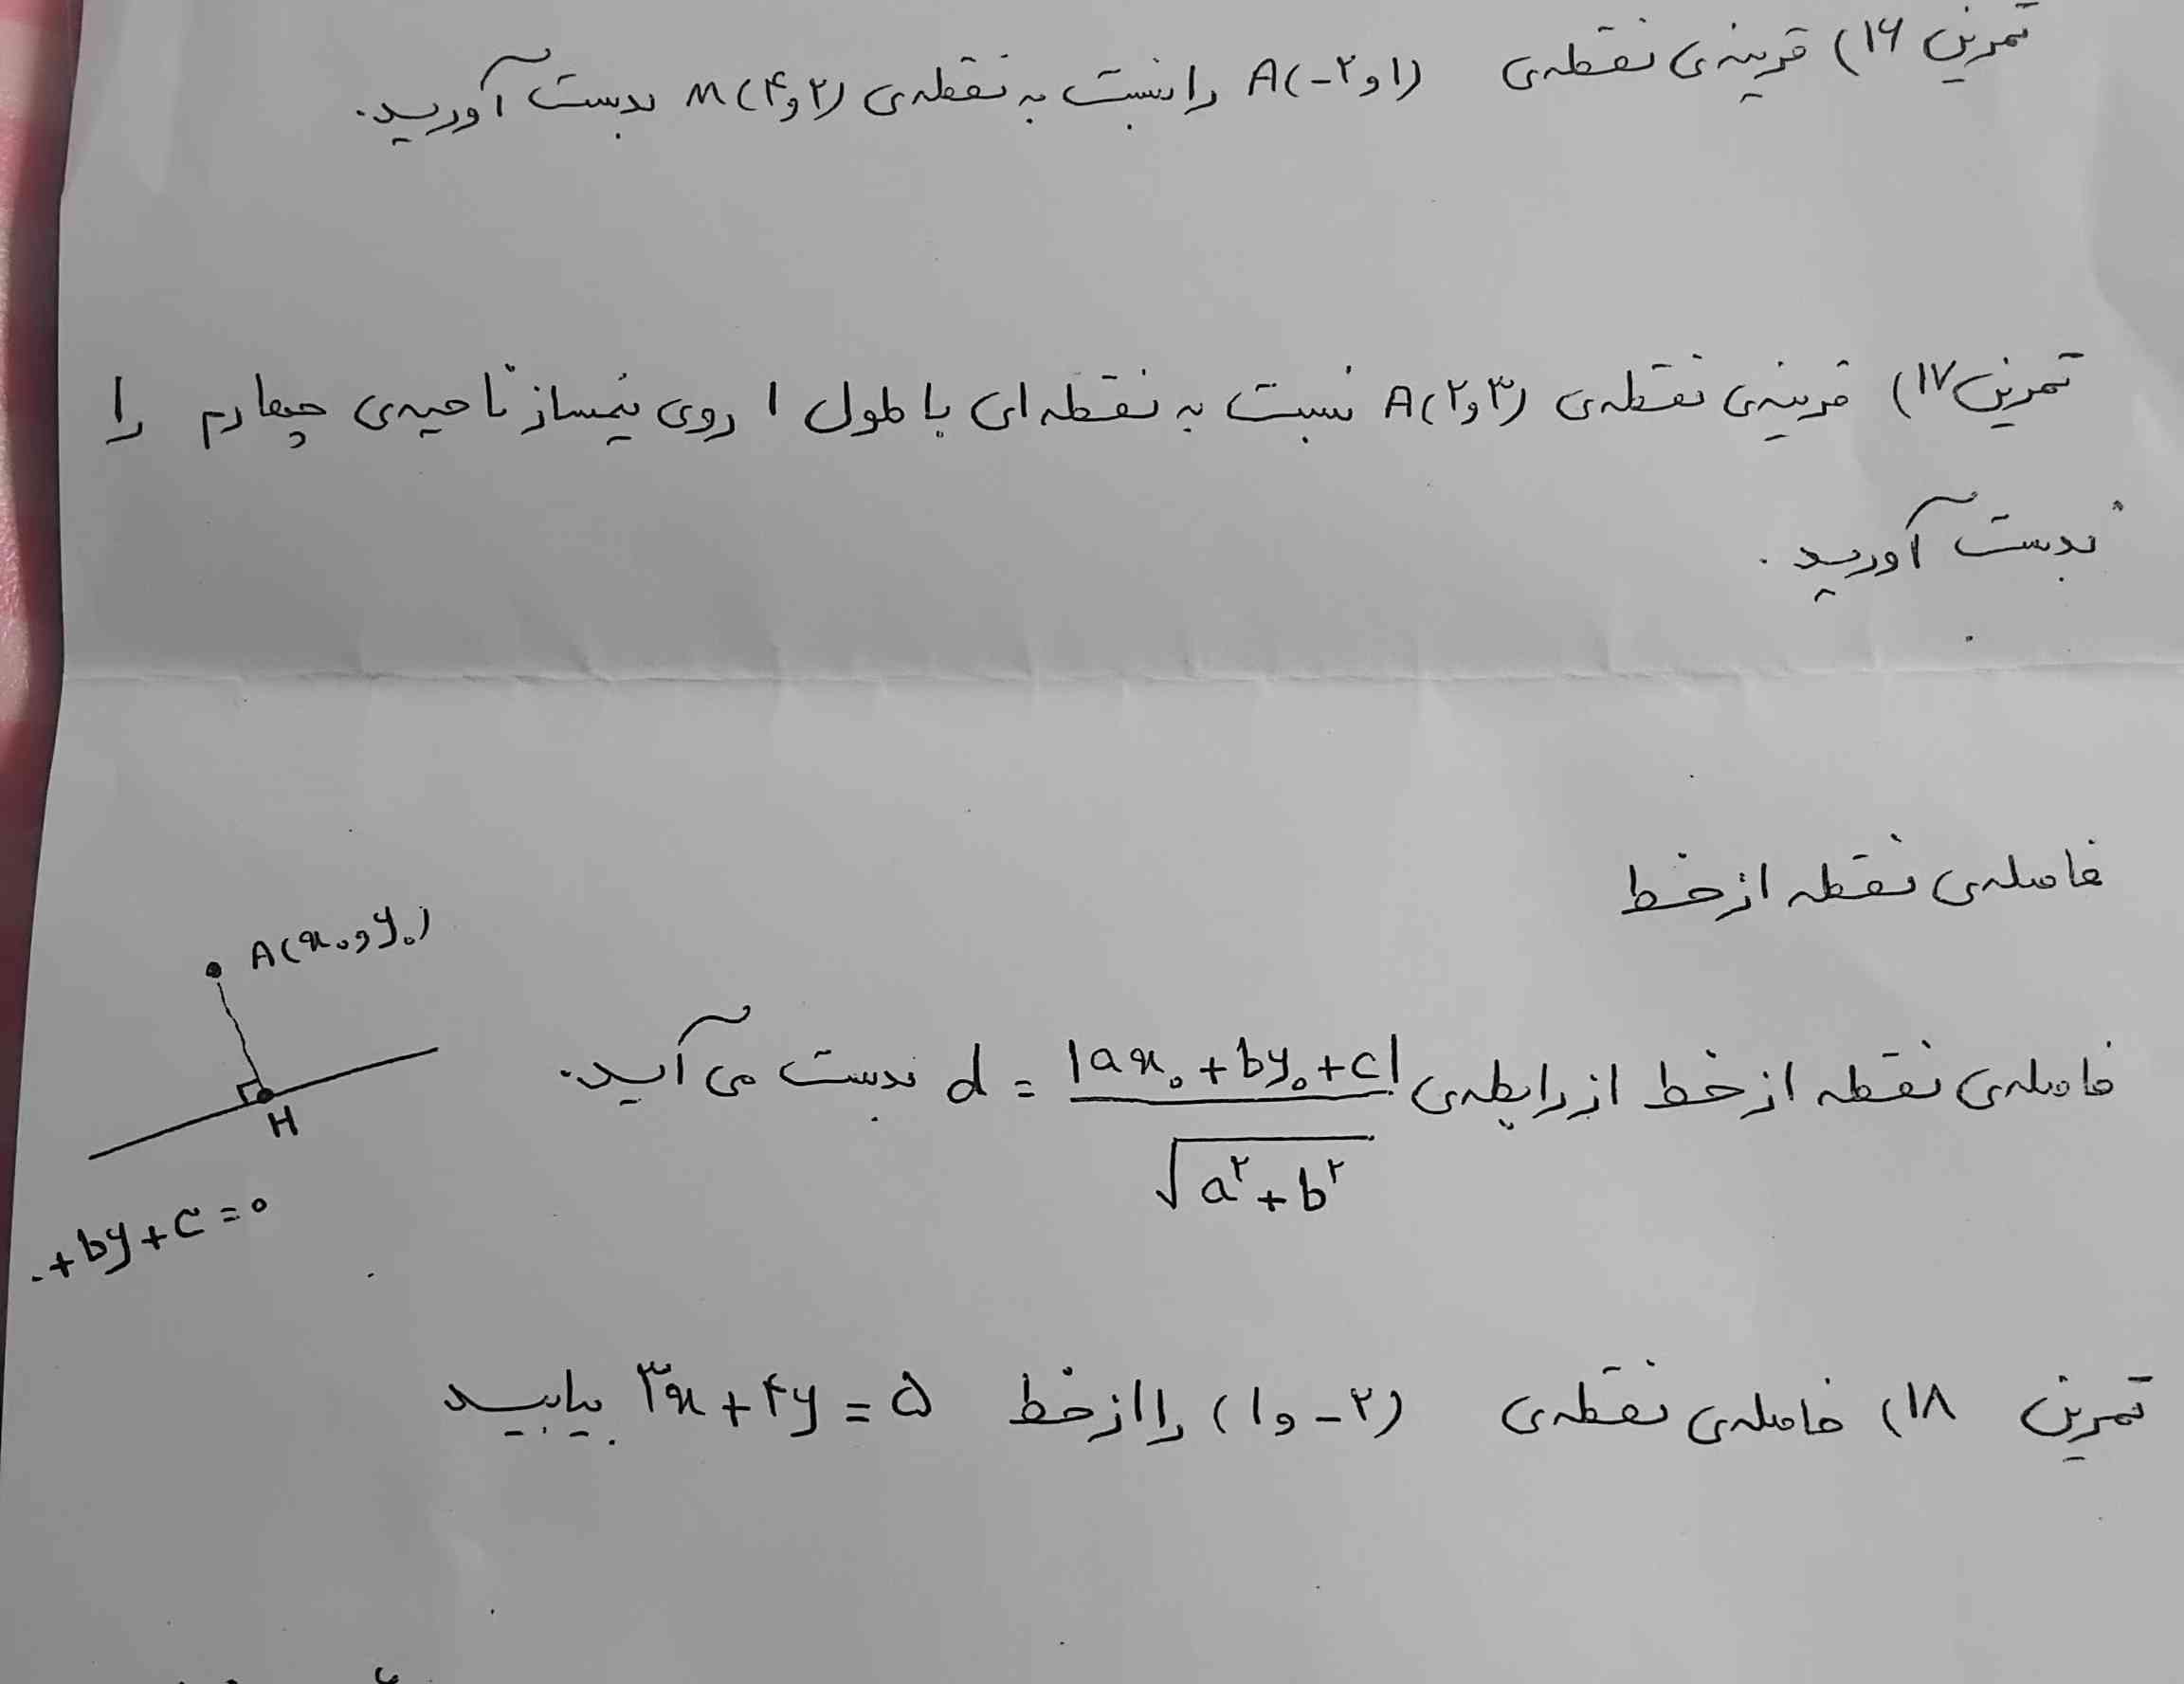 تمرین ۱۶) قرینه‌ی نقطه‌ی A(-۲و۱) را نسبت به نقطه‌ی M(۴و۲) بدست آورید.
تمرین ۱۷) قرینه‌ی نقطه‌ی A(۲و۳) نسبت به نقطه‌ای با طول ۱ روی نیمساز ناحیه‌ی چهارم را
بدست آورید.
فاصله‌ی نقطه از خط
A(x₀و y₀)
فاصله‌ی نقطه از خط از رابطه‌ی d = |ax₀+by₀+c| / √(a²+b²) بدست می‌آید.
H
+by+c=۰
تمرین ۱۸) فاصله‌ی نقطه‌ی (۱و-۲) را از خط ۳x+۴y=۵ بیابید